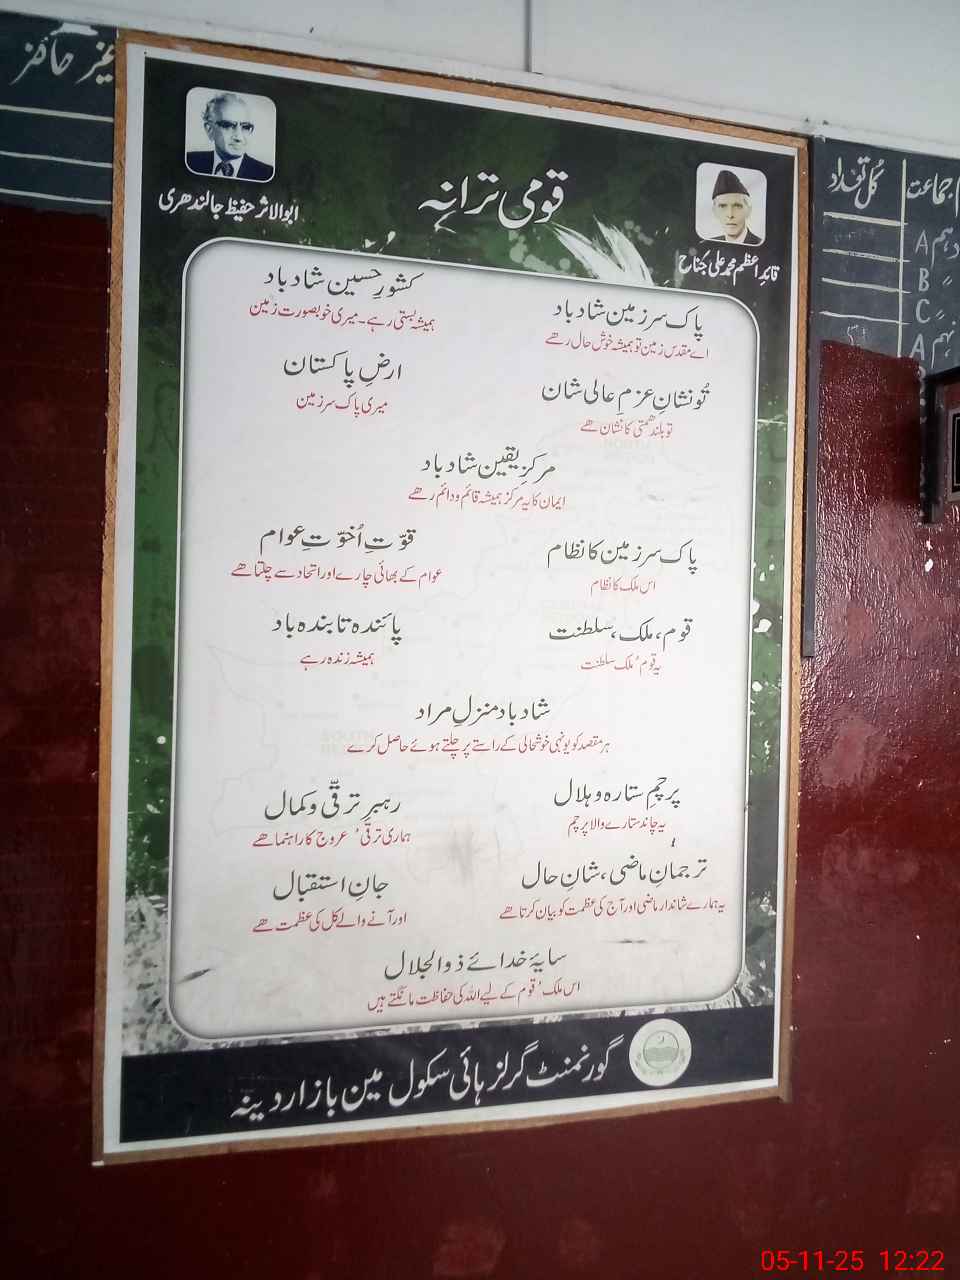 قومی ترانہ
قائدِ اعظم محمد علی جناح
ابوالاثر حفیظ جالندھری
پاک سرزمین شاد باد
اے مقدس زمین تو ہمیشہ خوش حال رھے
کشورِ حسین شاد باد
ہمیشہ بستی رہے۔ میری خوبصورت زمین
تُو نشانِ عزمِ عالی شان
تو بلند ھمتی کا نشان ھے
ارضِ پاکستان
میری پاک سرزمین
مرکزِ یقین شاد باد
ایمان کا یہ مرکز ہمیشہ قائم و دائم رھے
پاک سرزمین کا نظام
اس ملک کا نظام
قوّتِ اُخوّتِ عوام
عوام کے بھائی چارے اور اتحاد سے چلتا ھے
قوم، ملک، سلطنت
یہ قوم' ملک سلطنت
پائندہ تابندہ باد
ہمیشہ زندہ رہے
شاد باد منزلِ مراد
ہر مقصد کو یونہی خوشحالی کے راستے پر چلتے ہوئے حاصل کرے
پرچمِ ستارہ و ہلال
یہ چاند ستارے والا پرچم
رہبرِ ترقّی و کمال
ہماری ترقی' عروج کا راہنما ھے
ترجمانِ ماضی، شانِ حال
یہ ہمارے شاندار ماضی اور آج کی عظمت کو بیان کرتا ھے
جانِ استقبال
اور آنے والے کل کی عظمت ھے
سایۂ خدائے ذوالجلال
اس ملک' قوم کے لیے اللہ کی حفاظت مانگتے ہیں
گورنمنٹ گرلز ہائی سکول مین بازار دینہ
حاضر
جماعت کُل تعداد
دہم A
" B
" C
نہم A
05-11-25 12:22